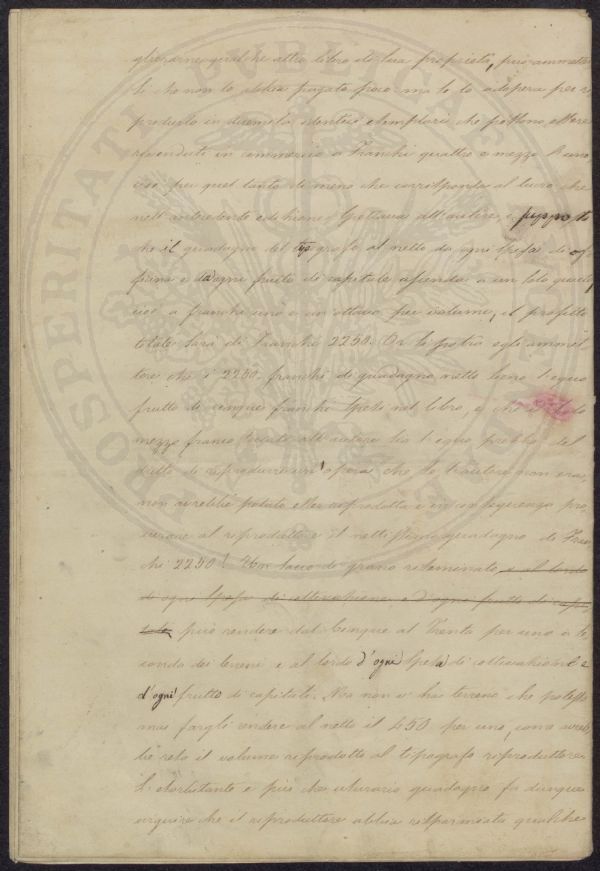 gliersene qualche altro libro di sua proprietà, può ammetter
si che non lo abbia pagato poco ma se lo adopera per ri
produrlo in duemila identici esemplari che possono essere
rivenduti in commercio a Franchi quattro e mezzo l'uno,
cioè per quel tanto di meno che corrisponde al lucro che
nell'antecedente edizione spettava all'autore, e supposto
che il guadagno del tipografo al netto da ogni spesa di of
ficina e da ogni frutto di capitale ascenda a un solo quarto
cioè a franchi uno e un ottavo per volume, il profitto
totale sarà di Franchi 2250. Or si potrà egli ammet
tere che i 2250 franchi di guadagno netto siano l'equo
frutto di cinque franchi spesi nel libro, e che il solo
mezzo franco toccato all'autore sia l'equo prezzo del
diritto di riprodurre un'opera che se l'autore non era,
non avrebbe potuto esser riprodotta e in conseguenza pro
curare al riproduttore il nettissimo guadagno di Fran
chi 2250! Un sacco di grano riseminato, e al lordo
di ogni spesa di coltivazione e d'ogni frutto di capi
tale può rendere dal Cinque al Trenta per uno a se
conda dei terreni e al lordo d'ogni spesa di coltivazione e
d'ogni frutto di capitali. Ma non v'ha terreno che potesse
mai fargli rendere al netto il 450 per uno, come avreb
be reso il volume riprodotto al tipografo riproduttore.
L'esorbitante e più che usurario guadagno fa dunque
arguire che il riproduttore abbia risparmiata qualche